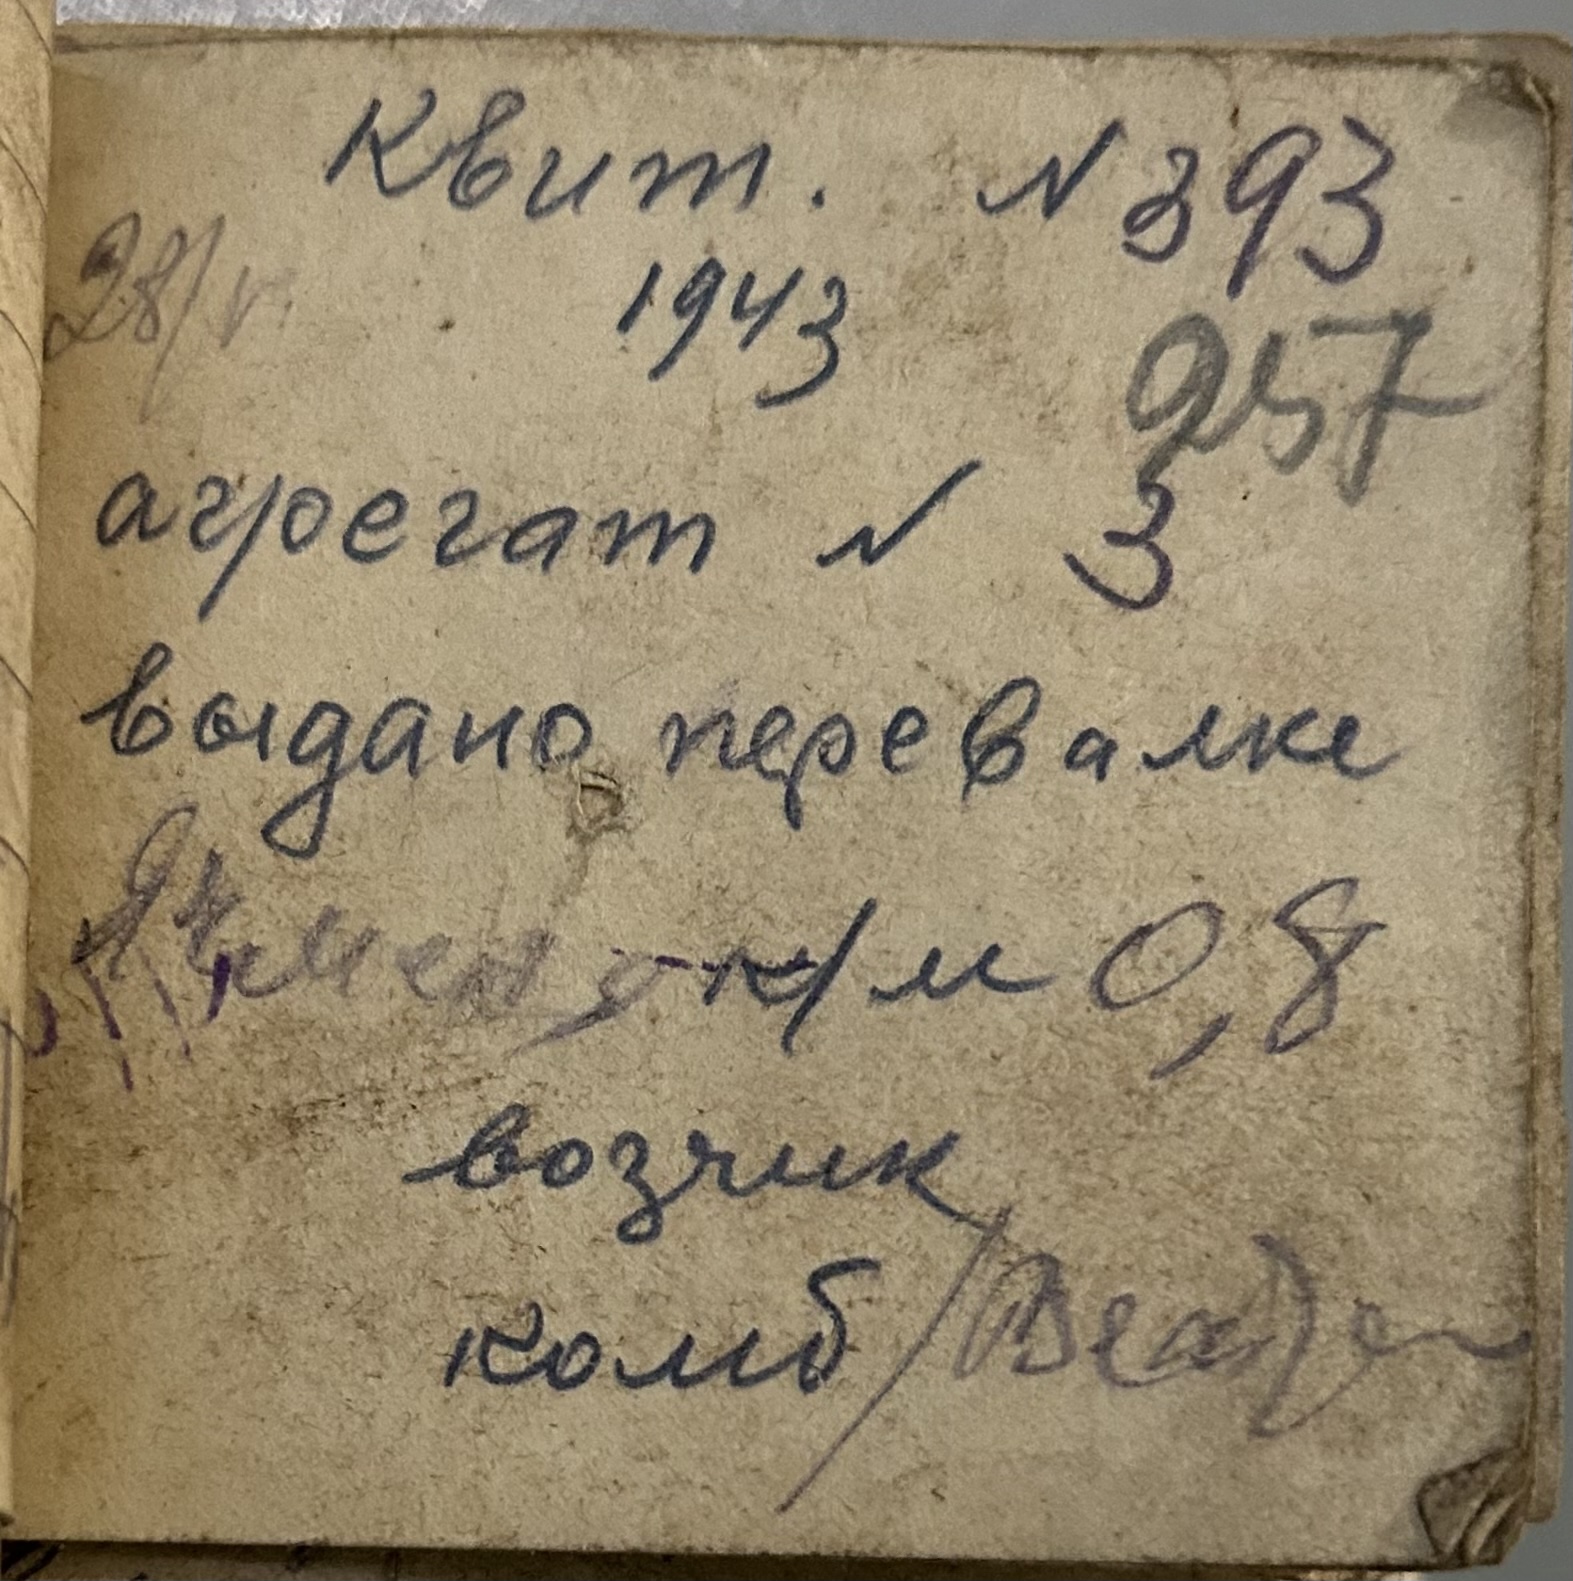 Квит. N 393
28/V. 1943
957
агрегат N 3
выдано перевалке
к/м 0,8
возчик
комб